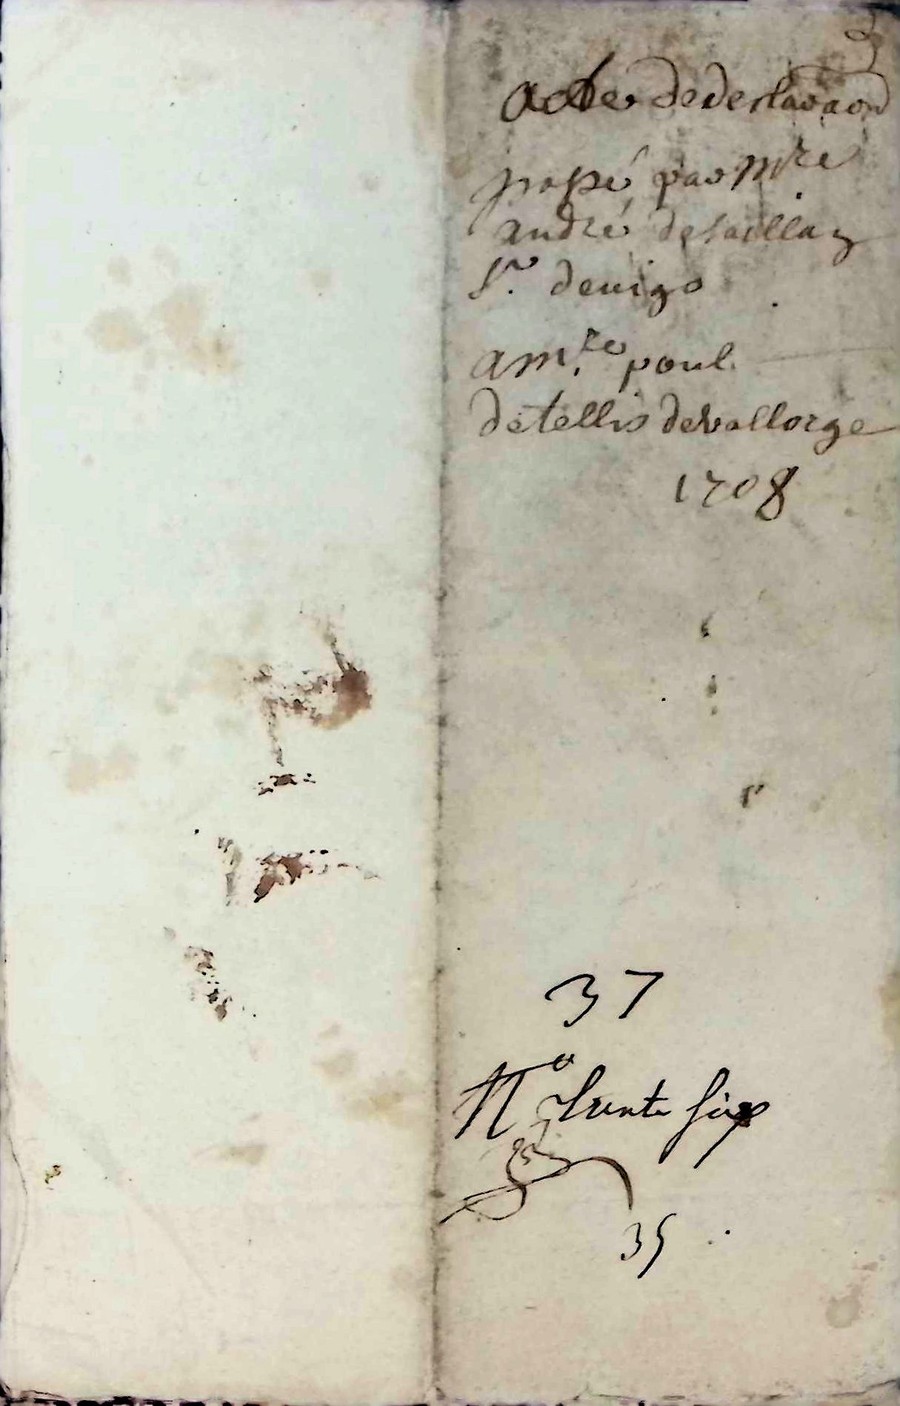 acte de declaraon
passé par mre
andré de
sr. de uigo
a mre poul
detellis devallorge
1708
37
No trente six
35